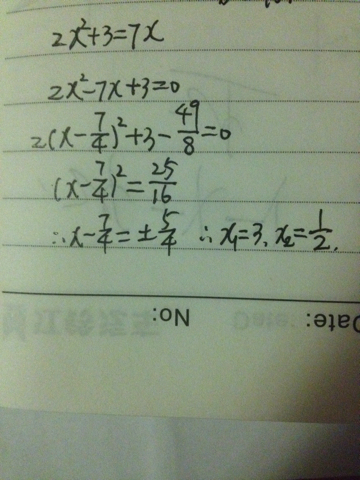 2x²+3=7x
2x²-7x+3=0
2(x-7/4)²+3-49/8=0
(x-7/4)²=25/16
∴x-7/4=±5/4 ∴x₁=3, x₂=1/2.
No:
Date: